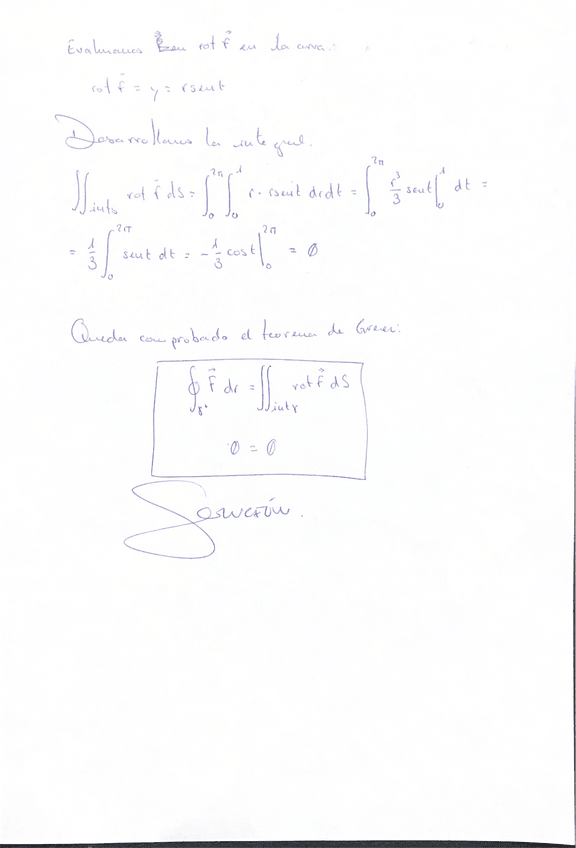 Evaluamos en rot F⃗ en la curva:
rot F⃗ = y = r sent
Desarrollamos la integral.
∬_intγ rot F⃗ dS = ∫₀^2π ∫₀^1 r · r sent dr dt = ∫₀^2π r³/3 sent |₀^1 dt =
= 1/3 ∫₀^2π sent dt = -1/3 cost |₀^2π = 0
Queda comprobado el teorema de Green:
∮_γ⁺ F⃗ dr = ∬_intγ rot F⃗ dS
0 = 0
SOLUCIÓN.